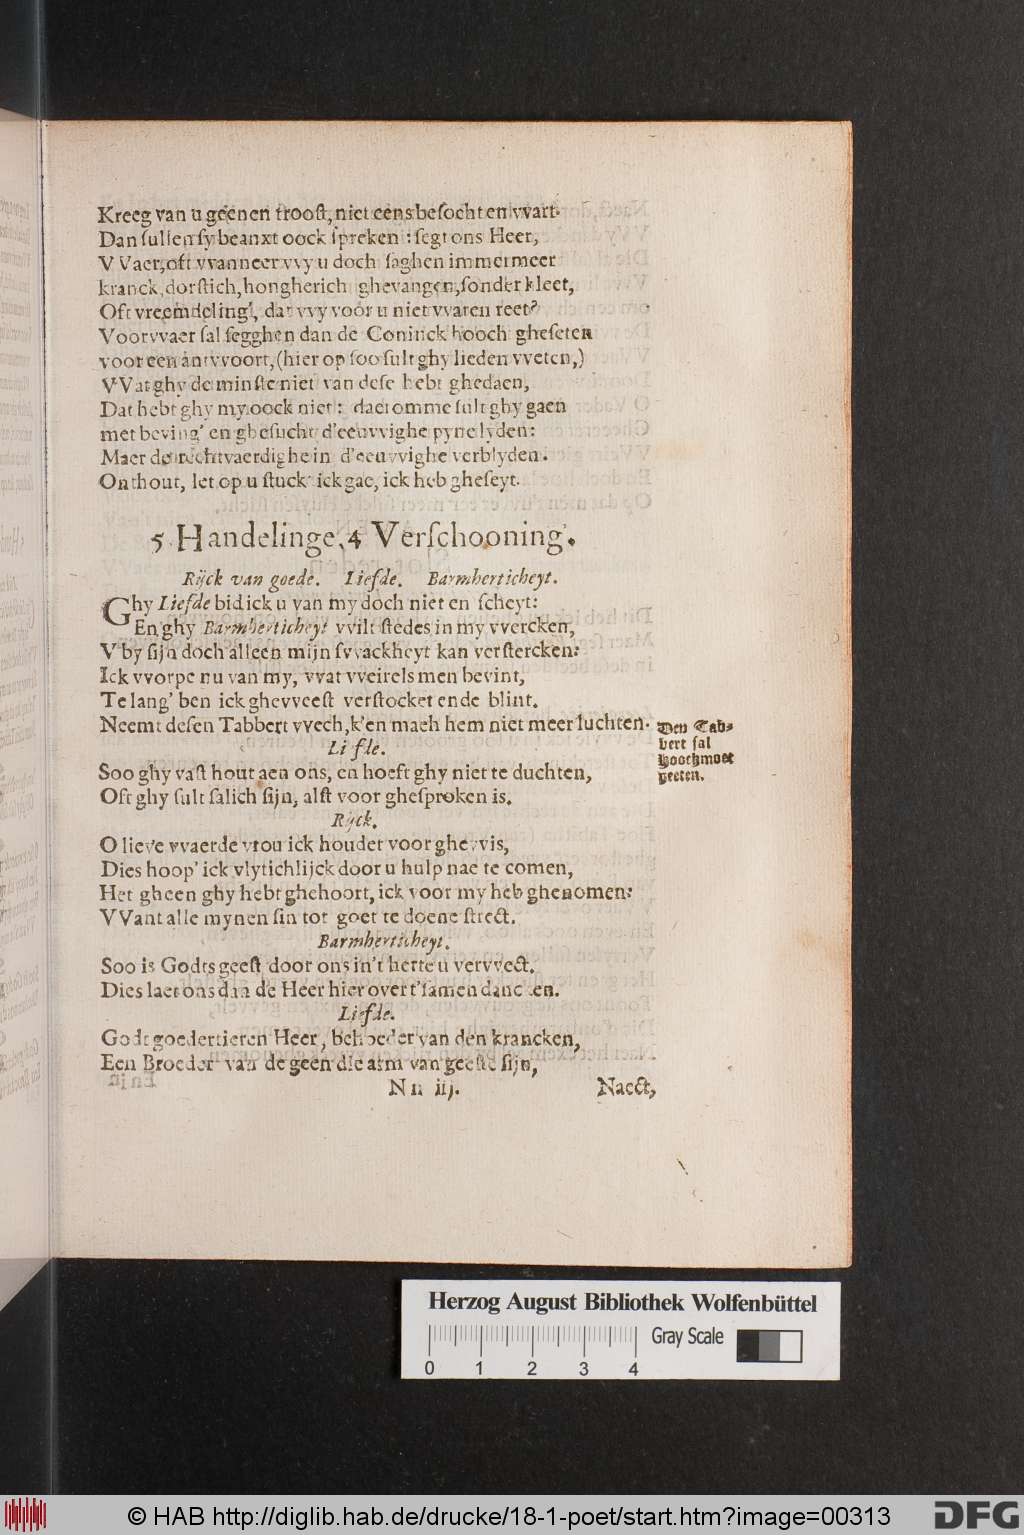 Kreeg van u geenen trooſt, niet eens beſocht en vvart.
Dan ſullen ſy beanxt oock ſpreken : ſegt ons Heer,
VVaer, oft vvanneer vvy u doch ſaghen immermeer
kranck, dorſtich, hongherich ghevangen, ſonder kleet,
Oft vreemdeling', dat vvy voor u niet vvaren reet?
Voorvvaer ſal ſegghen dan de Coninck hooch gheſeten
voor een antvvoort, (hier op ſoo ſult ghy lieden vveten,)
VVat ghy de minſte niet van deſe hebt ghedaen,
Dat hebt ghy my oock niet : daeromme ſult ghy gaen
met beving' en gheſucht d'eeuvvighe pyne lyden:
Maer de rechtvaerdighe in d'eeuvvighe verblyden.
Onthout, let op u ſtuck ick gae, ick heb gheſeyt.
5 Handelinge, 4 Verſchooning'.
Rijck van goede. Liefde. Barmherticheyt.
Ghy Liefde bid ick u van my doch niet en ſcheyt:
En ghy Barmherticheyt vvilt ſtedes in my vvercken,
V by ſijn doch alleen mijn ſvvackheyt kan verſtercken:
Ick vvorpe nu van my, vvat vveirelsmen bevint,
Te lang' ben ick ghevveeſt verſtocket ende blint.
Neemt deſen Tabbert vvech, k'en mach hem niet meer luchten.
Den Tab-
bert ſal
Hoochmoet
heeten.
Liefde.
Soo ghy vaſt hout aen ons, en hoeft ghy niet te duchten,
Oft ghy ſult ſalich ſijn, alſt voor gheſproken is.
Rijck.
O lieve vvaerde vrou ick houdet voor ghevvis,
Dies hoop' ick vlytichlijck door u hulp nae te comen,
Het gheen ghy hebt ghehoort, ick voor my heb ghenomen:
VVant alle mynen ſin tot goet te doene ſtrect.
Barmherticheyt.
Soo is Godts geeſt door ons in't herte u vervvect.
Dies laet ons dan de Heer hier over t'ſamen dancken.
Liefde.
Godt goedertieren Heer, behoeder van den krancken,
Een Broeder van de geen die arm van geeſte ſijn,
Nn iij. Naect,
Herzog August Bibliothek Wolfenbüttel
Gray Scale
0 1 2 3 4
© HAB http://diglib.hab.de/drucke/18-1-poet/start.htm?image=00313
DFG